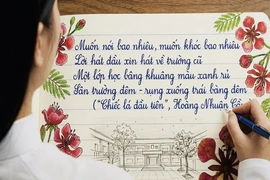 Muốn nói bao nhiêu, muốn khóc bao nhiêu
Lời hát đầu xin hát về trường cũ
Một lớp học bâng khuâng màu xanh rủ
Sân trường đêm - rụng xuống trái bàng đêm
("Chiếc lá đầu tiên", Hoàng Nhuận Cầ